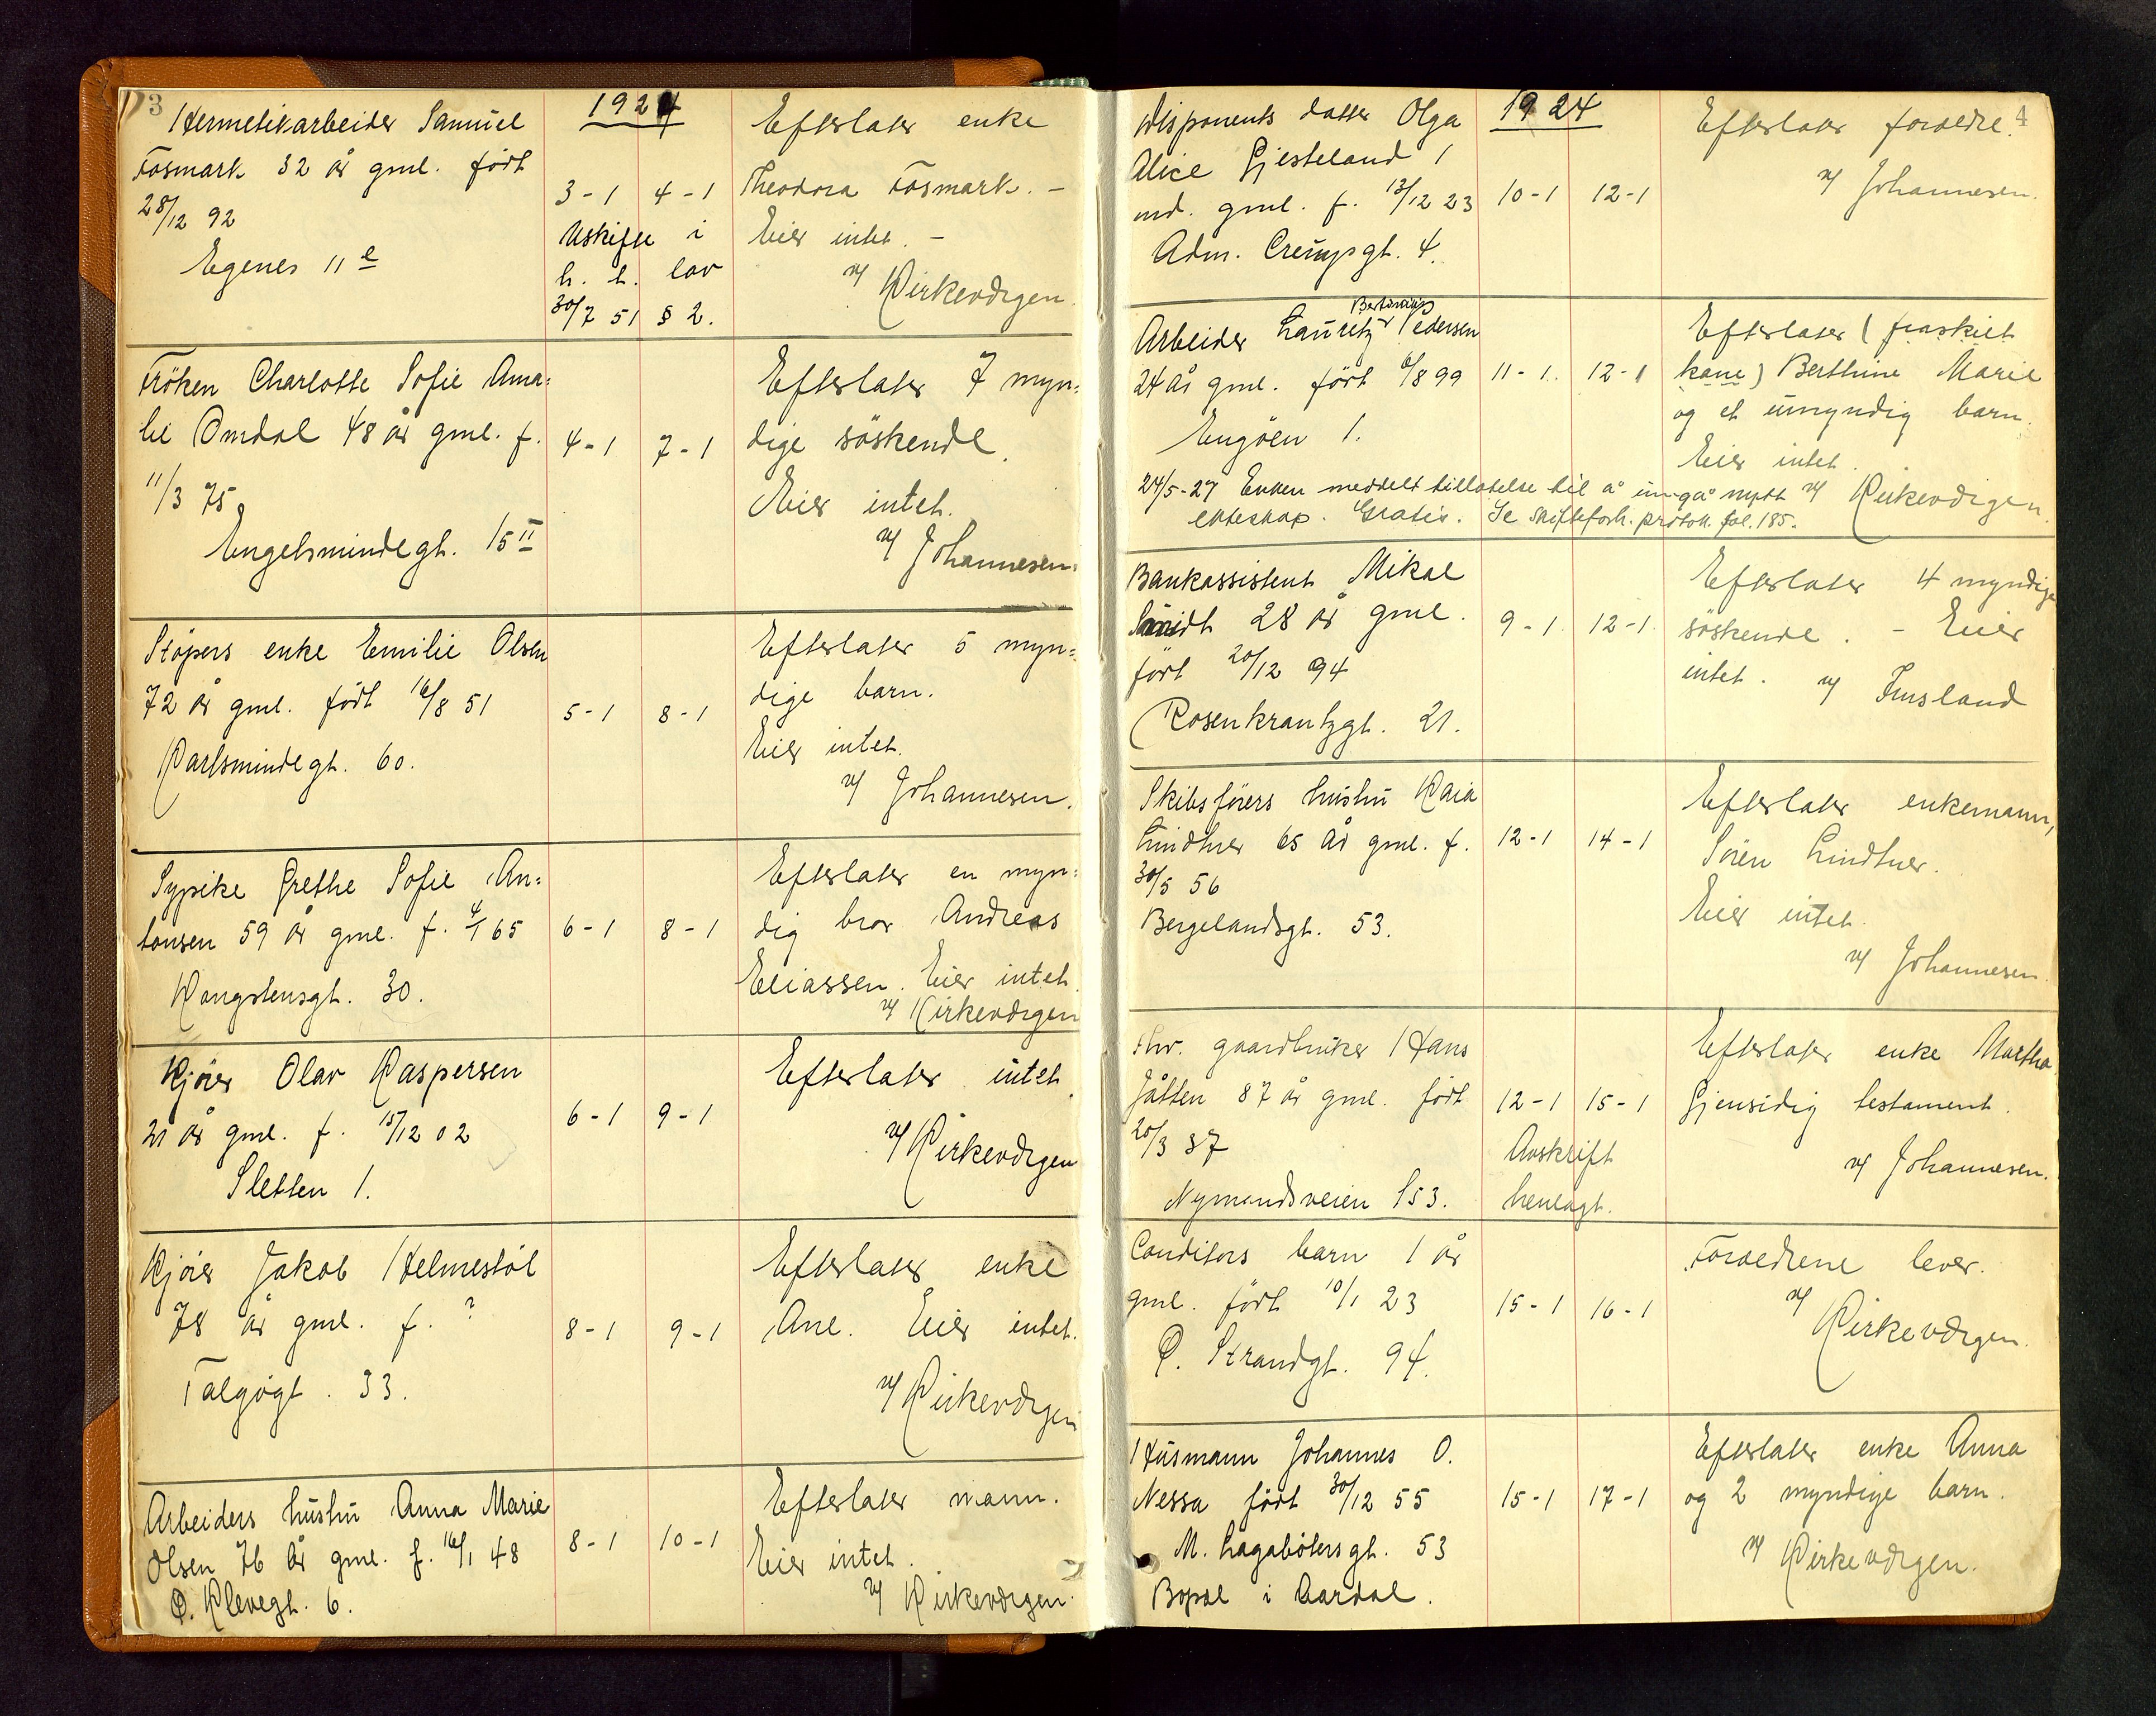 3
1924
Hermetikarbeider Samuel
Fosmark 32 år gml. født
28/12 92
Egenes 11 e
3-1 4-1
Uskifte i
h. t. lov
30/7 51 § 2.
Efterlater enke
Theodora Fosmark. -
Eier intet. -
Kirkevergen.
Fröken Charlotte Sofie Ama=
lie Omdal 48 år gml. f.
11/3 75
Engelsmindegt. 15 II
4-1 7-1
Efterlater 7 myn=
dige söskende.
Eier intet.
Johannesen.
Stöpers enke Emilie Olsen
72 år gml. født 16/8 51
Karlsmindegt. 60.
5-1 8-1
Efterlater 5 myn=
dige barn.
Eier intet.
Johannesen.
Sypike Grethe Sofie An=
tonsen 59 år gml. f. 4/1 65
Kongstensgt. 30.
6-1 8-1
Efterlater en myn=
dig bror Andreas
Eliassen. Eier intet.
Kirkevergen
Kjörer Olav Kaspersen
21 år gml. f. 15/12 02
Sletten 1.
6-1 9-1
Efterlater intet.
Kirkevergen
Kjörer Jakob Helmestöl
78 år gml. f. ?
Talgøgt. 33.
8-1 9-1
Efterlater enke
Ane. Eier intet.
Kirkevergen
Arbeiders hustru Anna Marie
Olsen 76 år gml. f. 16/1 48
Ø. Klevegt. 6.
8-1 10-1
Efterlater mann.
Eier intet.
Kirkevergen.
4
1924
Disponents datter Olga
Alice Gjesteland 1
md. gml. f. 13/12 23
Adm. Creuysgt. 4.
10-1 12-1
Efterlater forældre.
Johannesen.
Bertinius
Arbeider Lauretz Pedersen
24 år gml. født 6/8 99
Engöen 1.
11-1. 12-1
Efterlater (fraskilt
kone) Berthine Marie
og et umyndig barn.
Eier intet.
Kirkevergen.
24/5-27 Enken meddelt tillatelse til å inngå nytt
ekteskap. Gratis. Se Skifteforh. protok. fol. 185.
Bankassistent Mikal
Smidt 28 år gml.
født 20/12 94
Rosenkrantzgt. 21.
9-1. 12-1.
Efterlater 4 myndige
söskende. - Eier
intet.
Fmsland
Skibsförers hustru Kaia
Lindtner 65 år gml. f.
30/5 56
Bergelandsgt. 53.
12-1 14-1
Efterlater enkemann,
Sören Lindtner.
Eier intet.
Johannesen.
Fhv. gaardbruker Hans
Jåtten 87 år gml. født
20/3 37
Nymandsveien 153.
12-1 15-1
Avskrift
henlagt.
Efterlater enke Martha
Gjensidig testament.
Johannesen.
Conditors barn 1 år
gml. født 10/1 23
Ø. Strandgt. 94.
15-1 16-1
Forældrene lever.
Kirkevergen.
Husmann Johannes O.
Nessa født 30/12 55
M. Lagabøtersgt. 53
Bopæl i Aardal.
15-1 17-1
Efterlater enke Anna
og 2 myndige barn.
Kirkevergen.